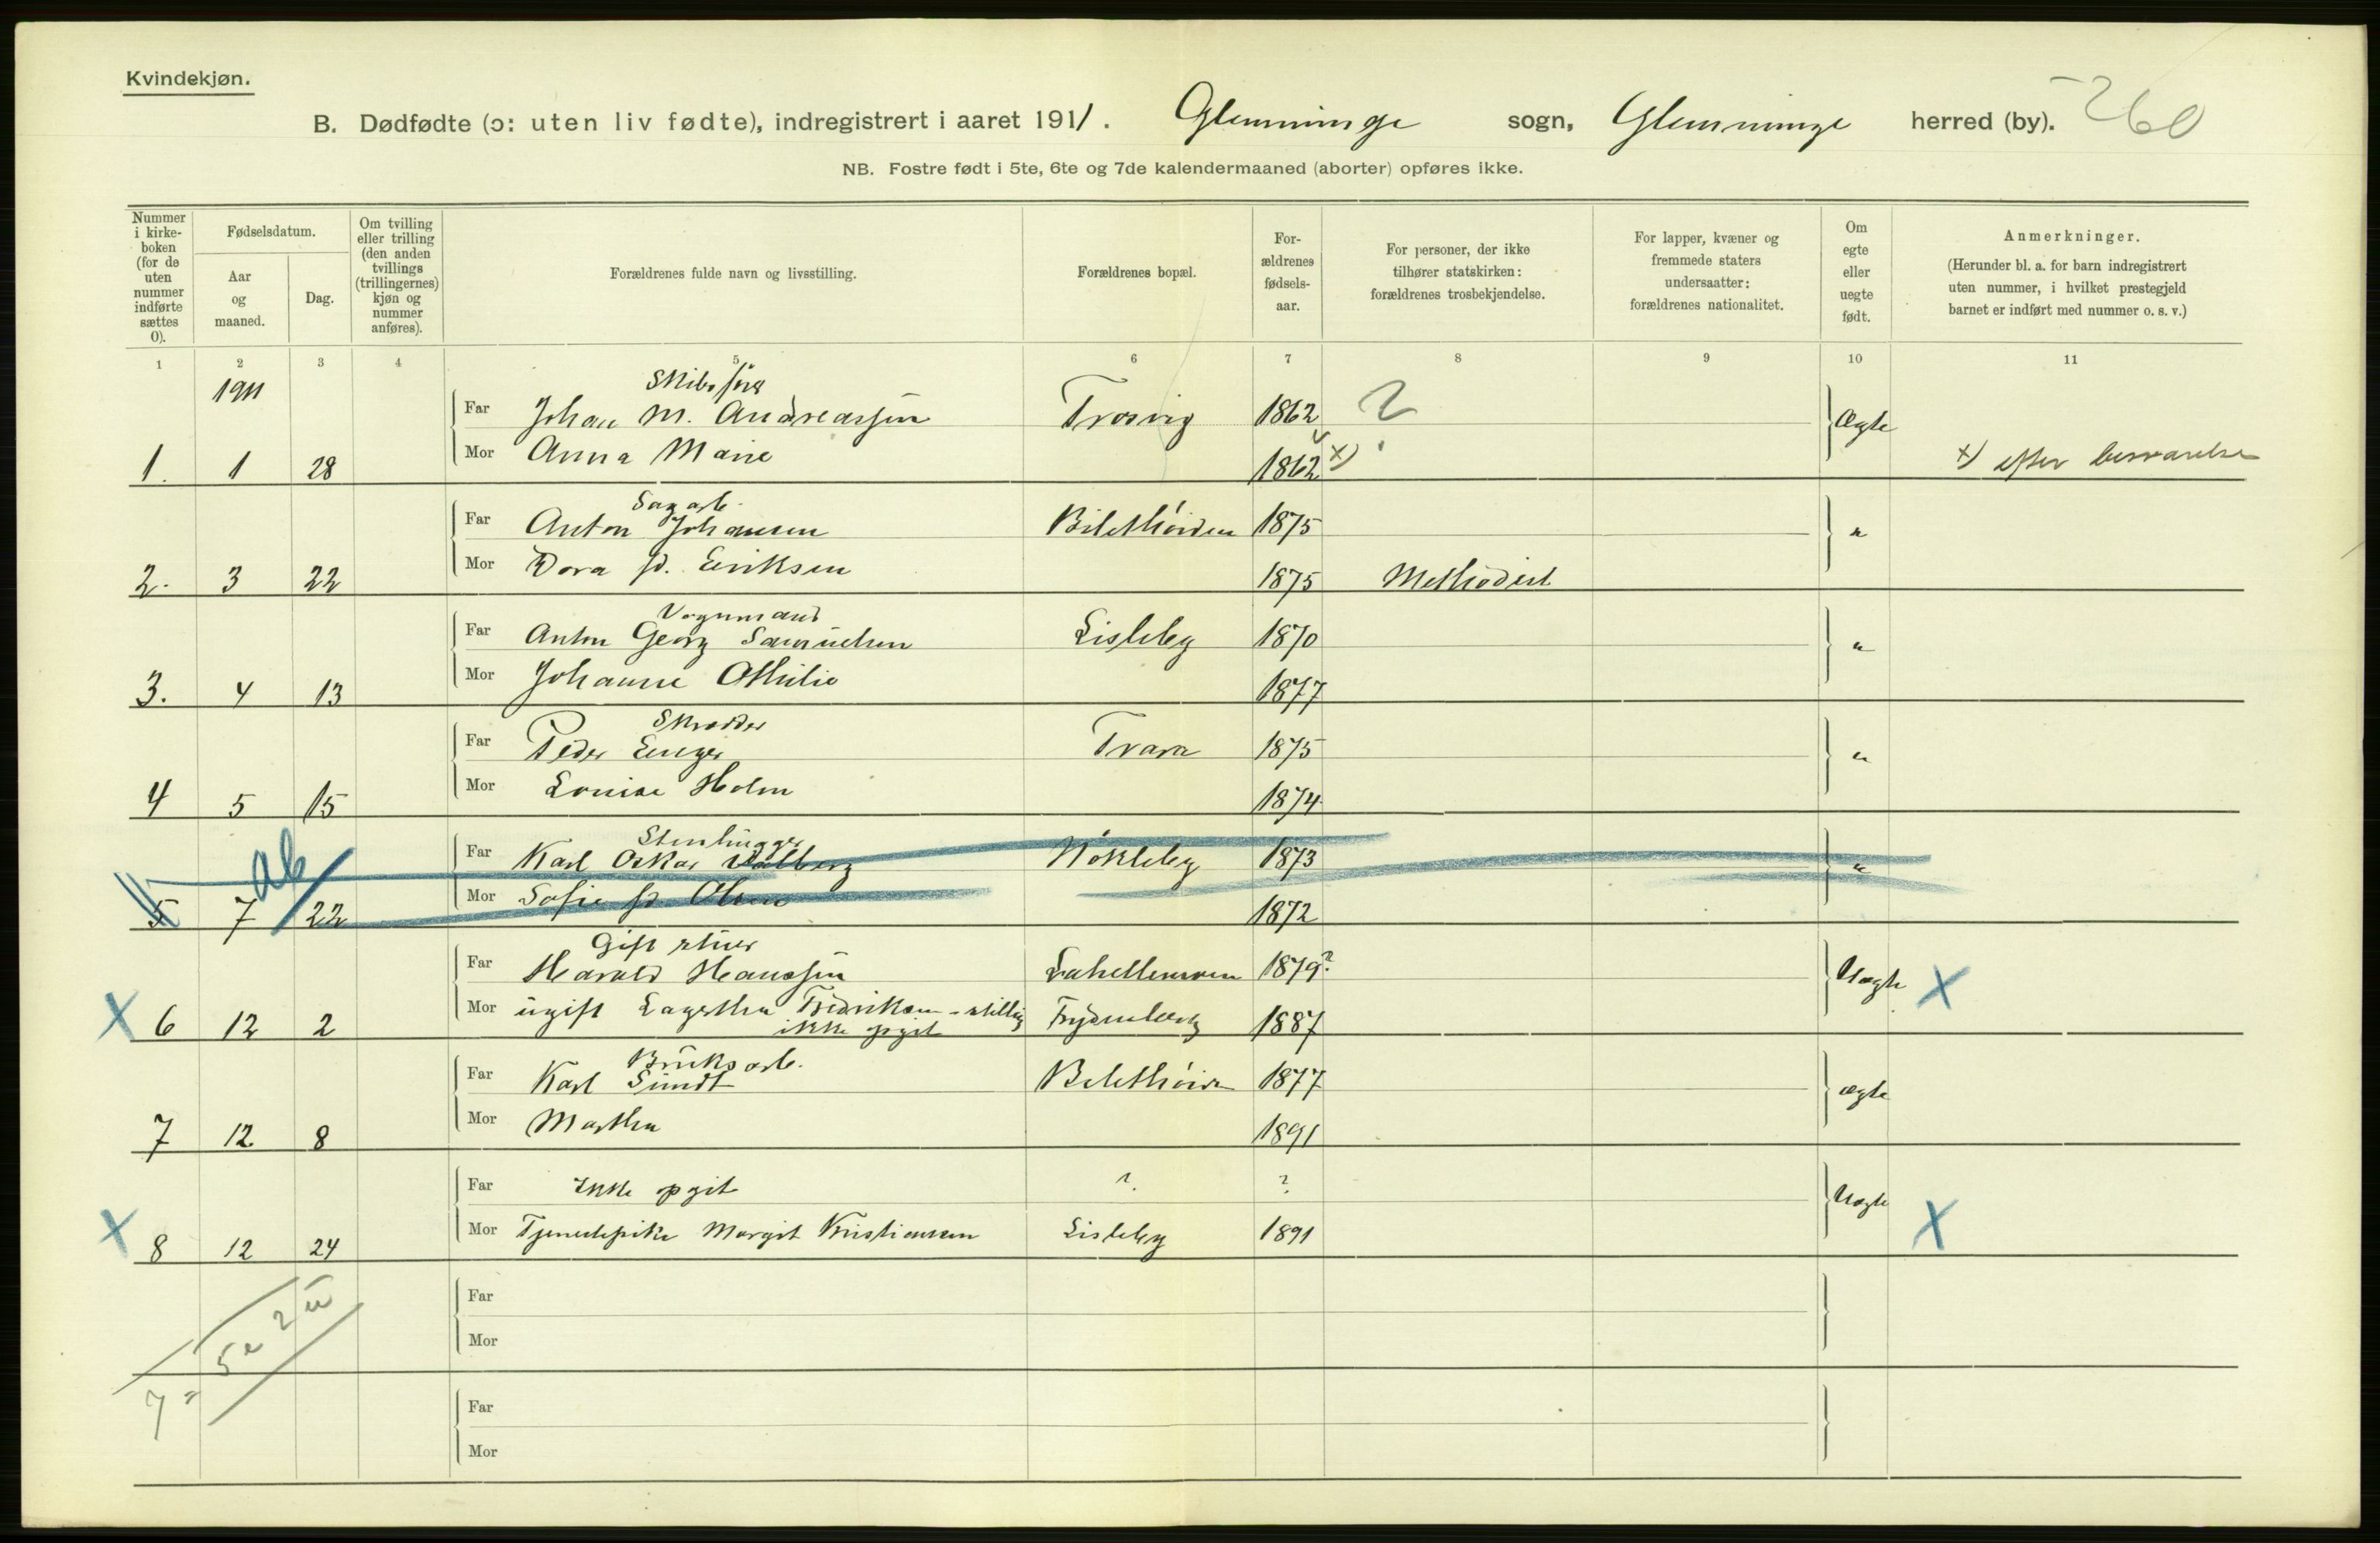 Kvindekjøn.
B. Dødfødte (ɔ: uten liv fødte), indregistrert i aaret 1911. Glemminge sogn, Glemminge herred (by). 260
NB. Fostre født i 5te, 6te og 7de kalendermaaned (aborter) opføres ikke.
Nummer i kirkeboken (for de uten nummer indførte sættes 0).
Fødselsdatum.
Aar og maaned.
Dag.
Om tvilling eller trilling (den anden tvillings (trillingernes) kjøn og nummer anføres).
Forældrenes fulde navn og livsstilling.
Forældrenes bopæl.
Forældrenes fødselsaar.
For personer, der ikke tilhører statskirken: forældrenes trosbekjendelse.
For lapper, kvæner og fremmede staters undersaatter: forældrenes nationalitet.
Om egte eller uegte født.
Anmerkninger.
(Herunder bl. a. for barn indregistrert uten nummer, i hvilket prestegjeld barnet er indført med nummer o. s. v.)
1 2 3 4 5 6 7 8 9 10 11
1911
Skibsfør
Far Johan M. Andreassen Trosvig 1862 Ægte
1. 1 28 Mor Anna Marie 1862 x) x) efter besvarelse
Sagarb.
Far Anton Johansen 1875 "
2. 3 22 Mor Dora f. Eriksen 1875 Methodist
Vognmand
Far Anton Georg Samuelsen Lisleby 1870 "
3. 4 13 Mor Johanne Othilie 1877
Skrædder
Far Peder Enger Trara 1875 "
4 5 15 Mor Louise Holm 1874
ab
Far Karl Oskar Nøkleby 1873 "
5 7 22 Mor Sofie f. Olsen 1872
Gift
Far Harald Hanssen 1879? Uægte X
X 6 12 2 Mor ugift Lagertha Fredriksen - stilling Frydenberg 1887
ikke opgit
Bruksarb.
Far Karl Sundt 1877 ægte
7 12. 8 Mor Martha 1891
Far Ikke opgit ? ? Uægte
X 8 12 24 Mor Tjenestepike Margit Kristiansen Lisleby 1891 X
Far
Mor
7 = 5 e 2 u
Far
Mor